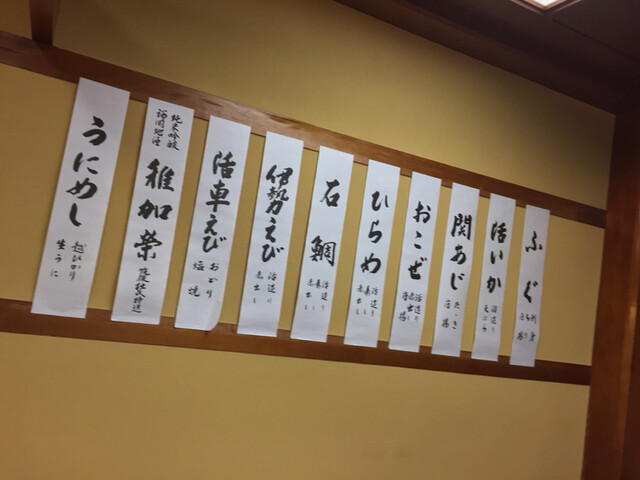 ふぐ
刺身
ちり
唐揚
活いか
活造り
天ぷら
関あじ
たゝき
唐揚
おこぜ
活造り
赤出し
唐揚
ひらめ
活造り
赤出し
石鯛
活造り
赤出し
伊勢えび
活造り
赤出し
活車えび
おどり
塩焼
純米吟醸
福岡地酒
稚加榮
うにめし
越ひかり
生うに